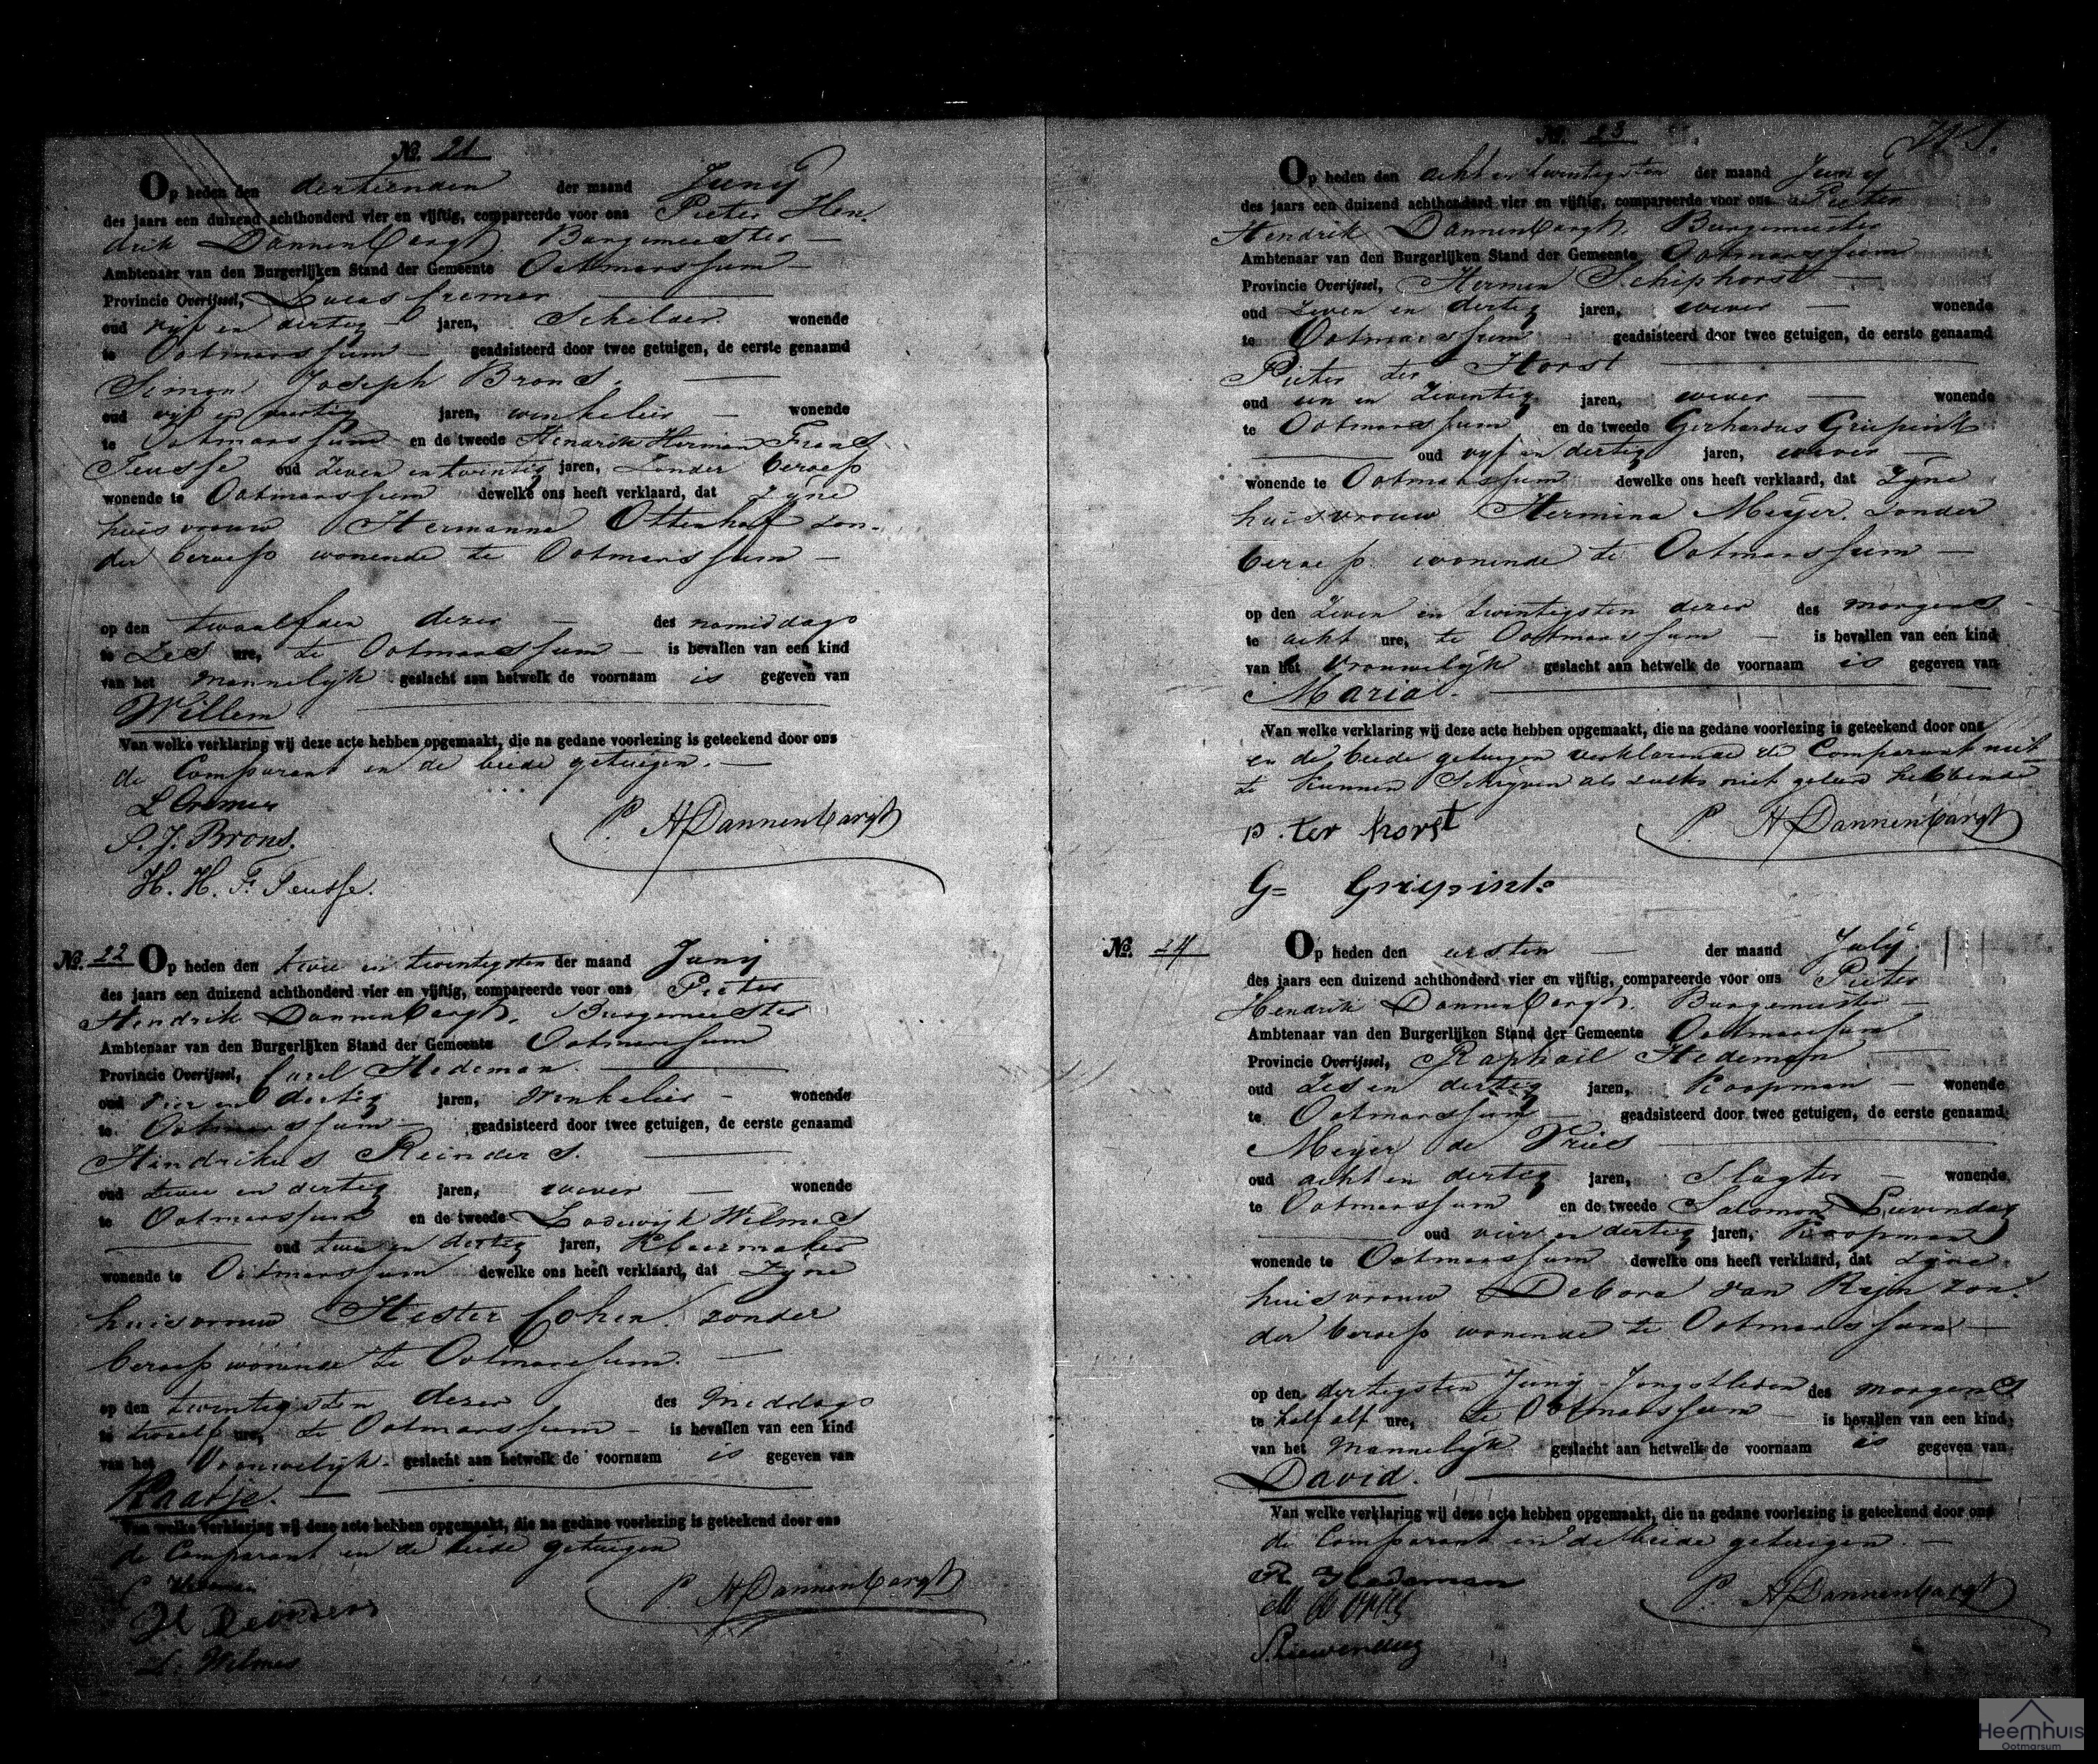 No. 21
Op heden den dertienden der maand Junij
des jaars een duizend achthonderd vier en vijftig, compareerde voor ons Pieter Hen-
drik Dannenbargh, Burgemeester
Ambtenaar van den Burgerlijken Stand der Gemeente Ootmarssum
Provincie Overijssel, Lucas Cremer
oud vijf en dertig jaren, Schilder wonende
te Ootmarssum geadsisteerd door twee getuigen, de eerste genaamd
Simon Joseph Brons.
oud vijf en veertig jaren, winkelier wonende
te Ootmarssum en de tweede Hendrik Herman Frans
Teusse oud Zeven en twintig jaren, Zonder beroep
wonende te Ootmarssum dewelke ons heeft verklaard, dat Zijne
huisvrouw Hermanna Ottenhof zon-
der beroep wonende te Ootmarssum
op den twaalfden dezer des namiddags
te Zes ure, te Ootmarssum is bevallen van een kind
van het Mannelijk geslacht aan hetwelk de voornaam is gegeven van
Willem
Van welke verklaring wij deze acte hebben opgemaakt, die na gedane voorlezing is geteekend door ons
de Comparant en de beide getuigen.
L Cremer
P. H Dannenbargh
S. J. Brons.
H. H. F. Teusse.
No. 22 Op heden den twee en twintigsten der maand Junij
des jaars een duizend achthonderd vier en vijftig, compareerde voor ons Pieter
Hendrik Dannenbargh, Burgemeester
Ambtenaar van den Burgerlijken Stand der Gemeente Ootmarssum
Provincie Overijssel, Carel Hedeman
oud vier en dertig jaren, Winkelier wonende
te Ootmarssum geadsisteerd door twee getuigen, de eerste genaamd
Hindrikus Reinders.
oud twee en dertig jaren, wever wonende
te Ootmarssum en de tweede Lodewijk Wilmes
oud twee en dertig jaren, Kleermaker
wonende te Ootmarssum dewelke ons heeft verklaard, dat Zijne
huisvrouw Hester Cohen, zonder
beroep wonende te Ootmarssum.
op den twintigsten dezer des Middags
te twaalf ure, te Ootmarssum is bevallen van een kind
van het Vrouwelijk geslacht aan hetwelk de voornaam is gegeven van
Kaatje.
Van welke verklaring wij deze acte hebben opgemaakt, die na gedane voorlezing is geteekend door ons
de Comparant en de beide getuigen
P. H Dannenbargh
H Reinders
L. Wilmes
No. 23
Op heden den acht en twintigsten der maand Junij
des jaars een duizend achthonderd vier en vijftig, compareerde voor ons Pieter
Hendrik Dannenbargh, Burgemeester
Ambtenaar van den Burgerlijken Stand der Gemeente Ootmarssum
Provincie Overijssel, Hermen Schiphorst
oud Zeven en dertig jaren, wever wonende
te Ootmarssum geadsisteerd door twee getuigen, de eerste genaamd
Pieter ter Horst
oud een en Zeventig jaren, wever wonende
te Ootmarssum en de tweede Gerhardus Griepink
oud vijf en dertig jaren, wever
wonende te Ootmarssum dewelke ons heeft verklaard, dat Zijne
huisvrouw Hermina Meijer, Zonder
beroep wonende te Ootmarssum
op den Zeven en twintigsten dezer des morgens
te acht ure, te Ootmarssum is bevallen van een kind
van het Vrouwelijk geslacht aan hetwelk de voornaam is gegeven van
Maria.
Van welke verklaring wij deze acte hebben opgemaakt, die na gedane voorlezing is geteekend door ons
en de beide getuigen verklarende de Comparant niet
te kunnen Schrijven als zulks niet geleerd hebbende
P. H Dannenbargh
p. ter horst
G= Griepink
No. 24 Op heden den eersten der maand Julij
des jaars een duizend achthonderd vier en vijftig, compareerde voor ons Pieter
Hendrik Dannenbargh, Burgemeester
Ambtenaar van den Burgerlijken Stand der Gemeente Ootmarssum
Provincie Overijssel, Raphael Hedeman
oud Zes en dertig jaren, Koopman wonende
te Ootmarssum geadsisteerd door twee getuigen, de eerste genaamd
Meijer de Vries
oud acht en dertig jaren, Slagter wonende
te Ootmarssum en de tweede Salomon Lievendag
oud vier en dertig jaren, Koopman
wonende te Ootmarssum dewelke ons heeft verklaard, dat Zijne
huisvrouw Debora van Rijn zon-
der beroep wonende te Ootmarssum
op den dertigsten Junij Jongstleden des morgens
te half alf ure, te Ootmarssum is bevallen van een kind
van het Mannelijk geslacht aan hetwelk de voornaam is gegeven van
David.
Van welke verklaring wij deze acte hebben opgemaakt, die na gedane voorlezing is geteekend door ons
de Comparant en de beide getuigen.
R Hedeman
P. H Dannenbargh
S. Liewendag
Heemhuis
Ootmarsum